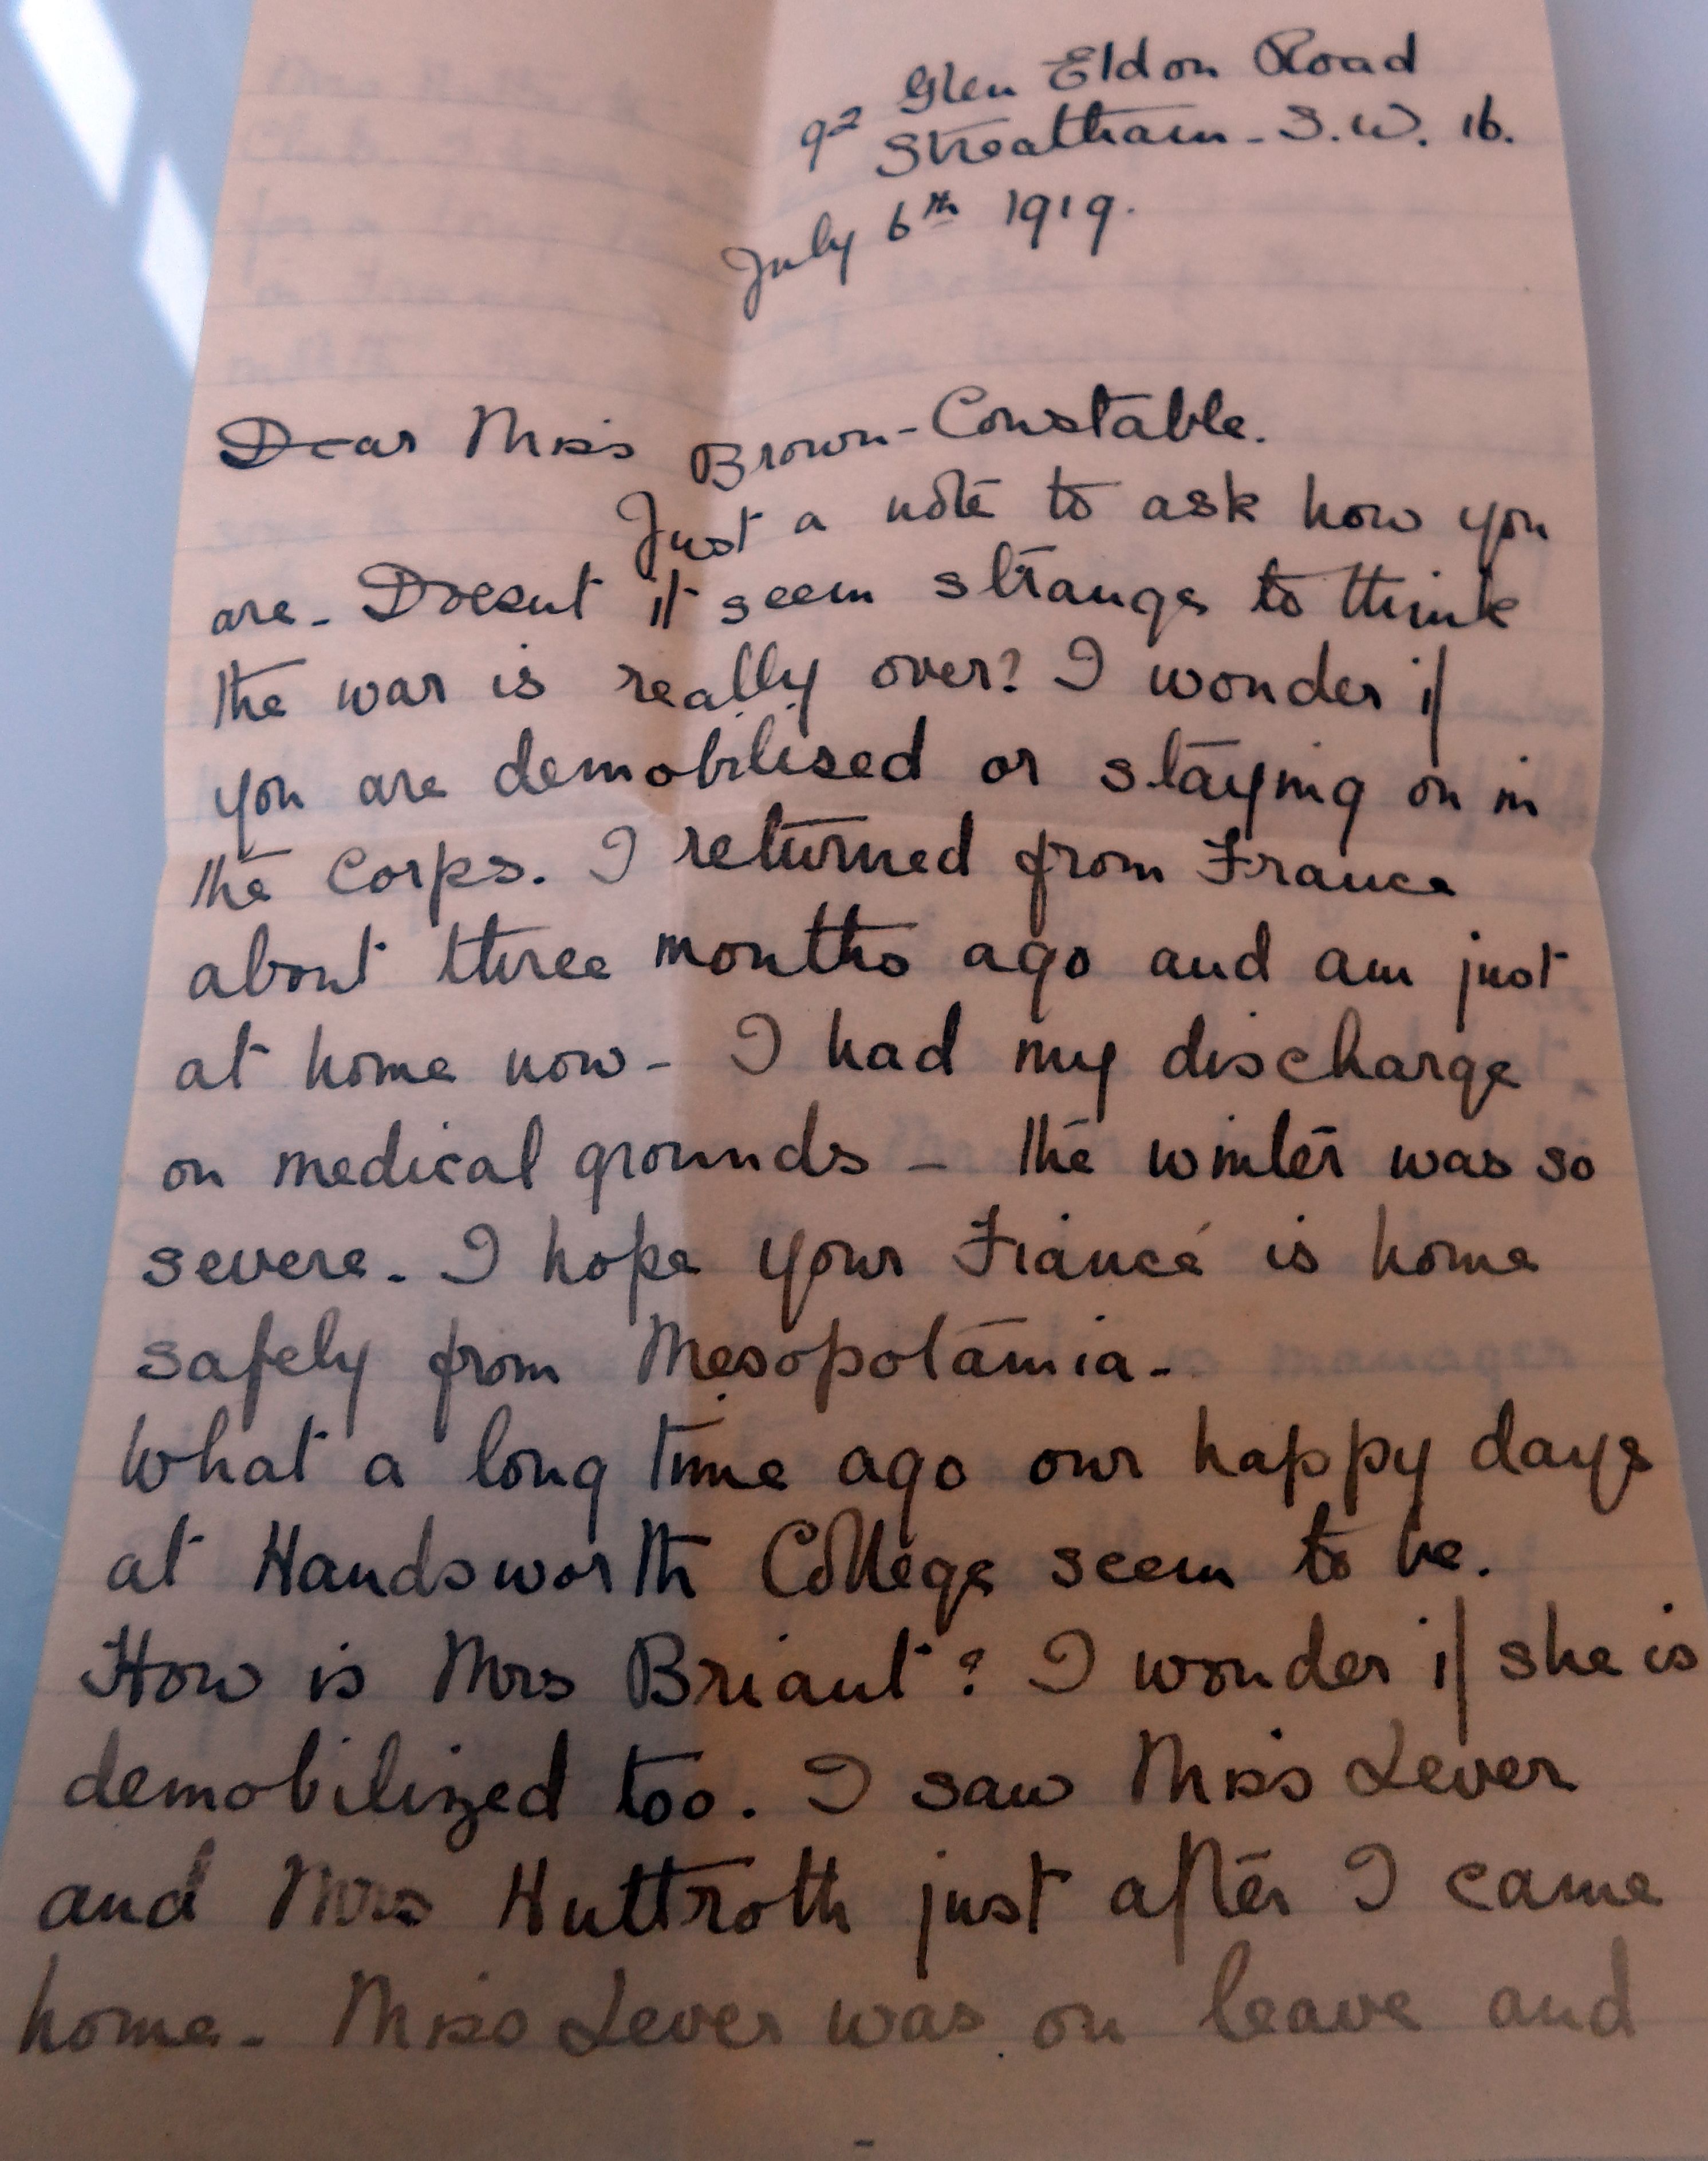 92 Glen Eldon Road
Streatham - S.W. 16.
July 6th 1919.
Dear Miss Brown-Constable.
Just a note to ask how you
are - Doesnt it seem strange to think
the war is really over? I wonder if
you are demobilised or staying on in
the Corps. I returned from France
about three months ago and am just
at home now - I had my discharge
on medical grounds - the winter was so
severe. I hope your Fiancé is home
safely from Mesopotamia -
What a long time ago our happy days
at Handsworth College seem to be.
How is Mrs Briant? I wonder if she is
demobilized too. I saw Miss Lever
and Mrs Huttroth just after I came
home - Miss Lever was on leave and